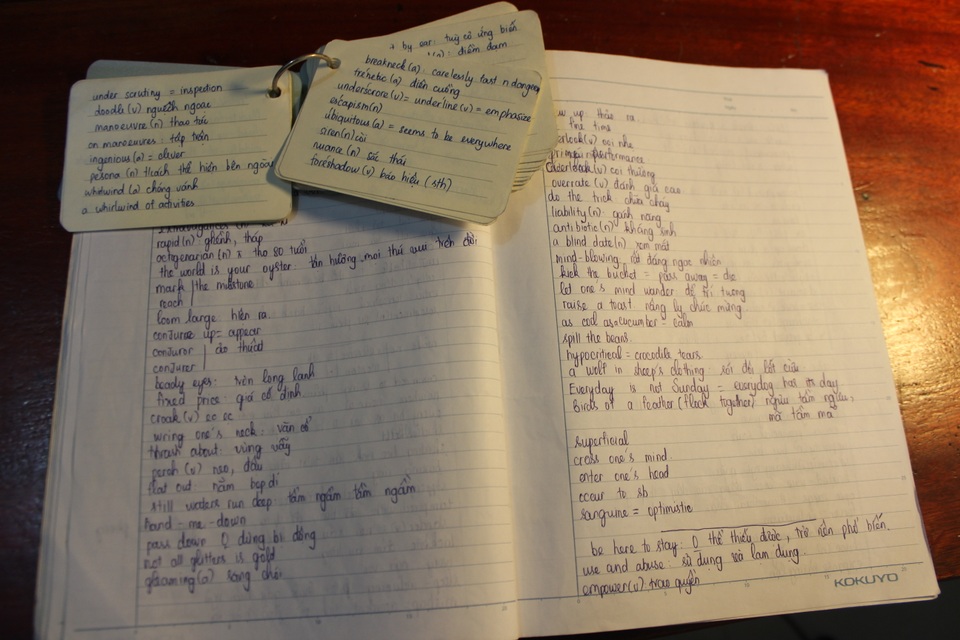 under scrutiny = inspection
doodle (v) nguệch ngoạc
manoeuvre (n) thao tác
on manoeuvres : tập trận
ingenious (a) = cliver
persona (n) t/cách thể hiện bên ngoài
whirlwind (a) chóng vánh
a whirlwind of activities
+ by ear : tuỳ cơ ứng biến
(a) : điềm đạm
breakneck (a) : carelessly fast n dangerous
frenetic (a) điên cuồng
underscore (v) = underline (v) = emphasize
escapism (n)
ubiquitous (a) = seems to be everywhere
siren (n) còi
nuance (n) sắc thái
foreshadow (v) báo hiệu (sth)
rapid (n) : ghềnh, tháp
octogenarian (n) : thọ 80 tuổi
the world is your oyster : tận hưởng mọi thú vui trên đời
mark | the milestone
reach |
loom large : hiện ra.
conjure up = appear
conjuror | ảo thuật
conjurer |
beady eyes : tròn long lanh
fixed price : giá cố định
croak (v) ộc ộc
wring one's neck : vặn cổ
thrash about : vùng vẫy
perch (v) neo, đậu
flat out nằm bẹp dí
still waters run deep : tẩm ngẩm tầm ngầm
hand - me - down
pass down Q dùng bị động
not all glitters is gold
gleaming (a) sáng chói
up thảo ra
fine time
overlook (v) coi nhẹ
performance
underlook (v) coi thường
overrate (v) đánh giá cao
do the trick chữa cháy
liability (n) : gánh nặng
antibiotic (n) kháng sinh
a blind date (n) xem mắt
mind-blowing : rất đáng ngạc nhiên
kick the bucket = pass away = die
let one's mind wander để trí tưởng
raise a toast nâng ly chúc mừng
as cool as a cucumber = calm
spill the beans.
hypocritical = crocodile tears.
a wolf in sheep's clothing sói đội lốt cừu
Everyday is not Sunday = everydog has its day
Birds of a feather (flock together) ngưu tầm ngưu,
mã tầm mã
superficial
cross one's mind.
enter one's head
occur to sb
sanguine = optimistic
be here to stay : 0 thể thiếu được, trở nên phổ biến.
use and abuse : sử dụng và lạm dụng.
empower (v) : trao quyền
KOKUYO